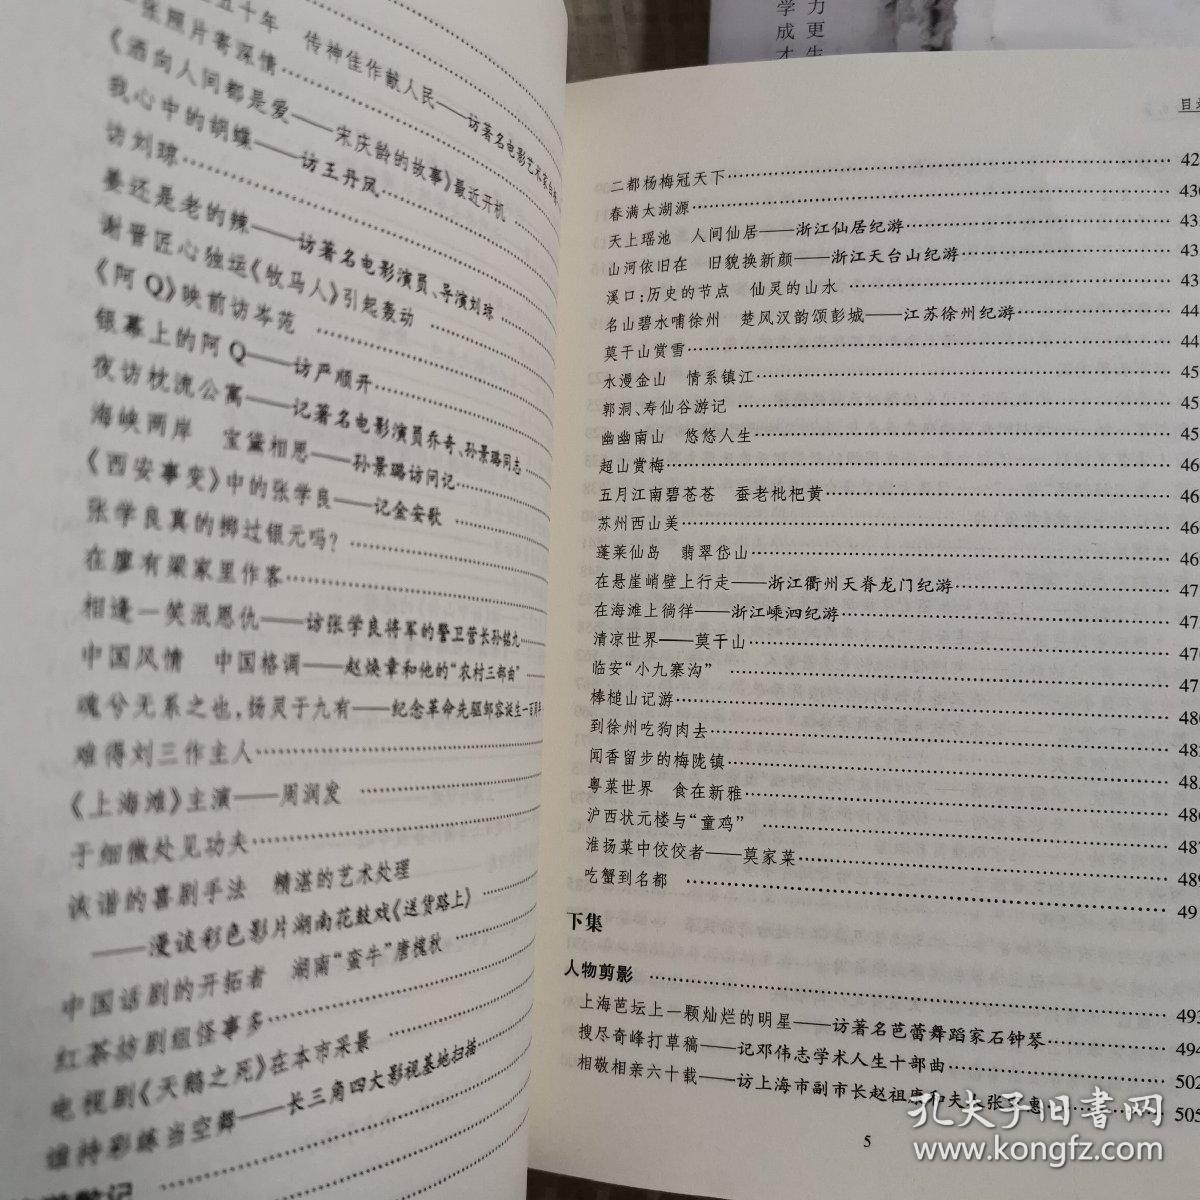 五十年　传神佳作献人民——访著名电影艺术家
张照片寄深情
《洒向人间都是爱——宋庆龄的故事》最近开机
我心中的胡蝶——访王丹凤
访刘琼
姜还是老的辣——访著名电影演员、导演刘琼
谢晋匠心独运《牧马人》引起轰动
《阿Q》映前访岑范
银幕上的阿Q——访严顺开
夜访枕流公寓——记著名电影演员乔奇、孙景璐同志
海峡两岸　宝黛相思——孙景璐访问记
《西安事变》中的张学良——记金安歌
张学良真的掷过银元吗?
在廖有梁家里作客
相逢一笑泯恩仇——访张学良将军的警卫营长孙铭九
中国风情　中国格调——赵焕章和他的“农村三部曲”
魂兮无系之也,扬灵于九有——纪念革命先驱邹容诞生一百周年
难得刘三作主人
《上海滩》主演——周润发
于细微处见功夫
诙谐的喜剧手法　精湛的艺术处理
——漫谈彩色影片湖南花鼓戏《送货路上》
中国话剧的开拓者　湖南“蛮牛”唐槐秋
红茶坊剧组怪事多
电视剧《天鹅之死》在本市采景
谁持彩练当空舞——长三角四大影视基地扫描
散记
力更生
学成才
目
二都杨梅冠天下 42
春满太湖源 43
天上瑶池　人间仙居——浙江仙居纪游 43
山河依旧在　旧貌换新颜——浙江天台山纪游 43
溪口:历史的节点　仙灵的山水 43
名山碧水哺徐州　楚风汉韵颂彭城——江苏徐州纪游 44
莫干山赏雪 44
水漫金山　情系镇江 45
郭洞、寿仙谷游记 45
幽幽南山　悠悠人生 45
超山赏梅 46
五月江南碧苍苍　蚕老枇杷黄 46
苏州西山美 46
蓬莱仙岛　翡翠岱山 46
在悬崖峭壁上行走——浙江衢州天脊龙门纪游 47
在海滩上徜徉——浙江嵊泗纪游 47
清凉世界——莫干山 47
临安“小九寨沟” 47
棒槌山记游 48
到徐州吃狗肉去 48
闻香留步的梅陇镇 48
粤菜世界　食在新雅 486
沪西状元楼与“童鸡” 487
淮扬菜中佼佼者——莫家菜 489
吃蟹到名都 49
下集
人物剪影 493
上海芭坛上一颗灿烂的明星——访著名芭蕾舞蹈家石钟琴 494
搜尽奇峰打草稿——记邓伟志学术人生十部曲 502
相敬相亲六十载——访上海市副市长赵祖康和夫人张家惠 505
5
孔夫子旧书网
www.kongfz.com